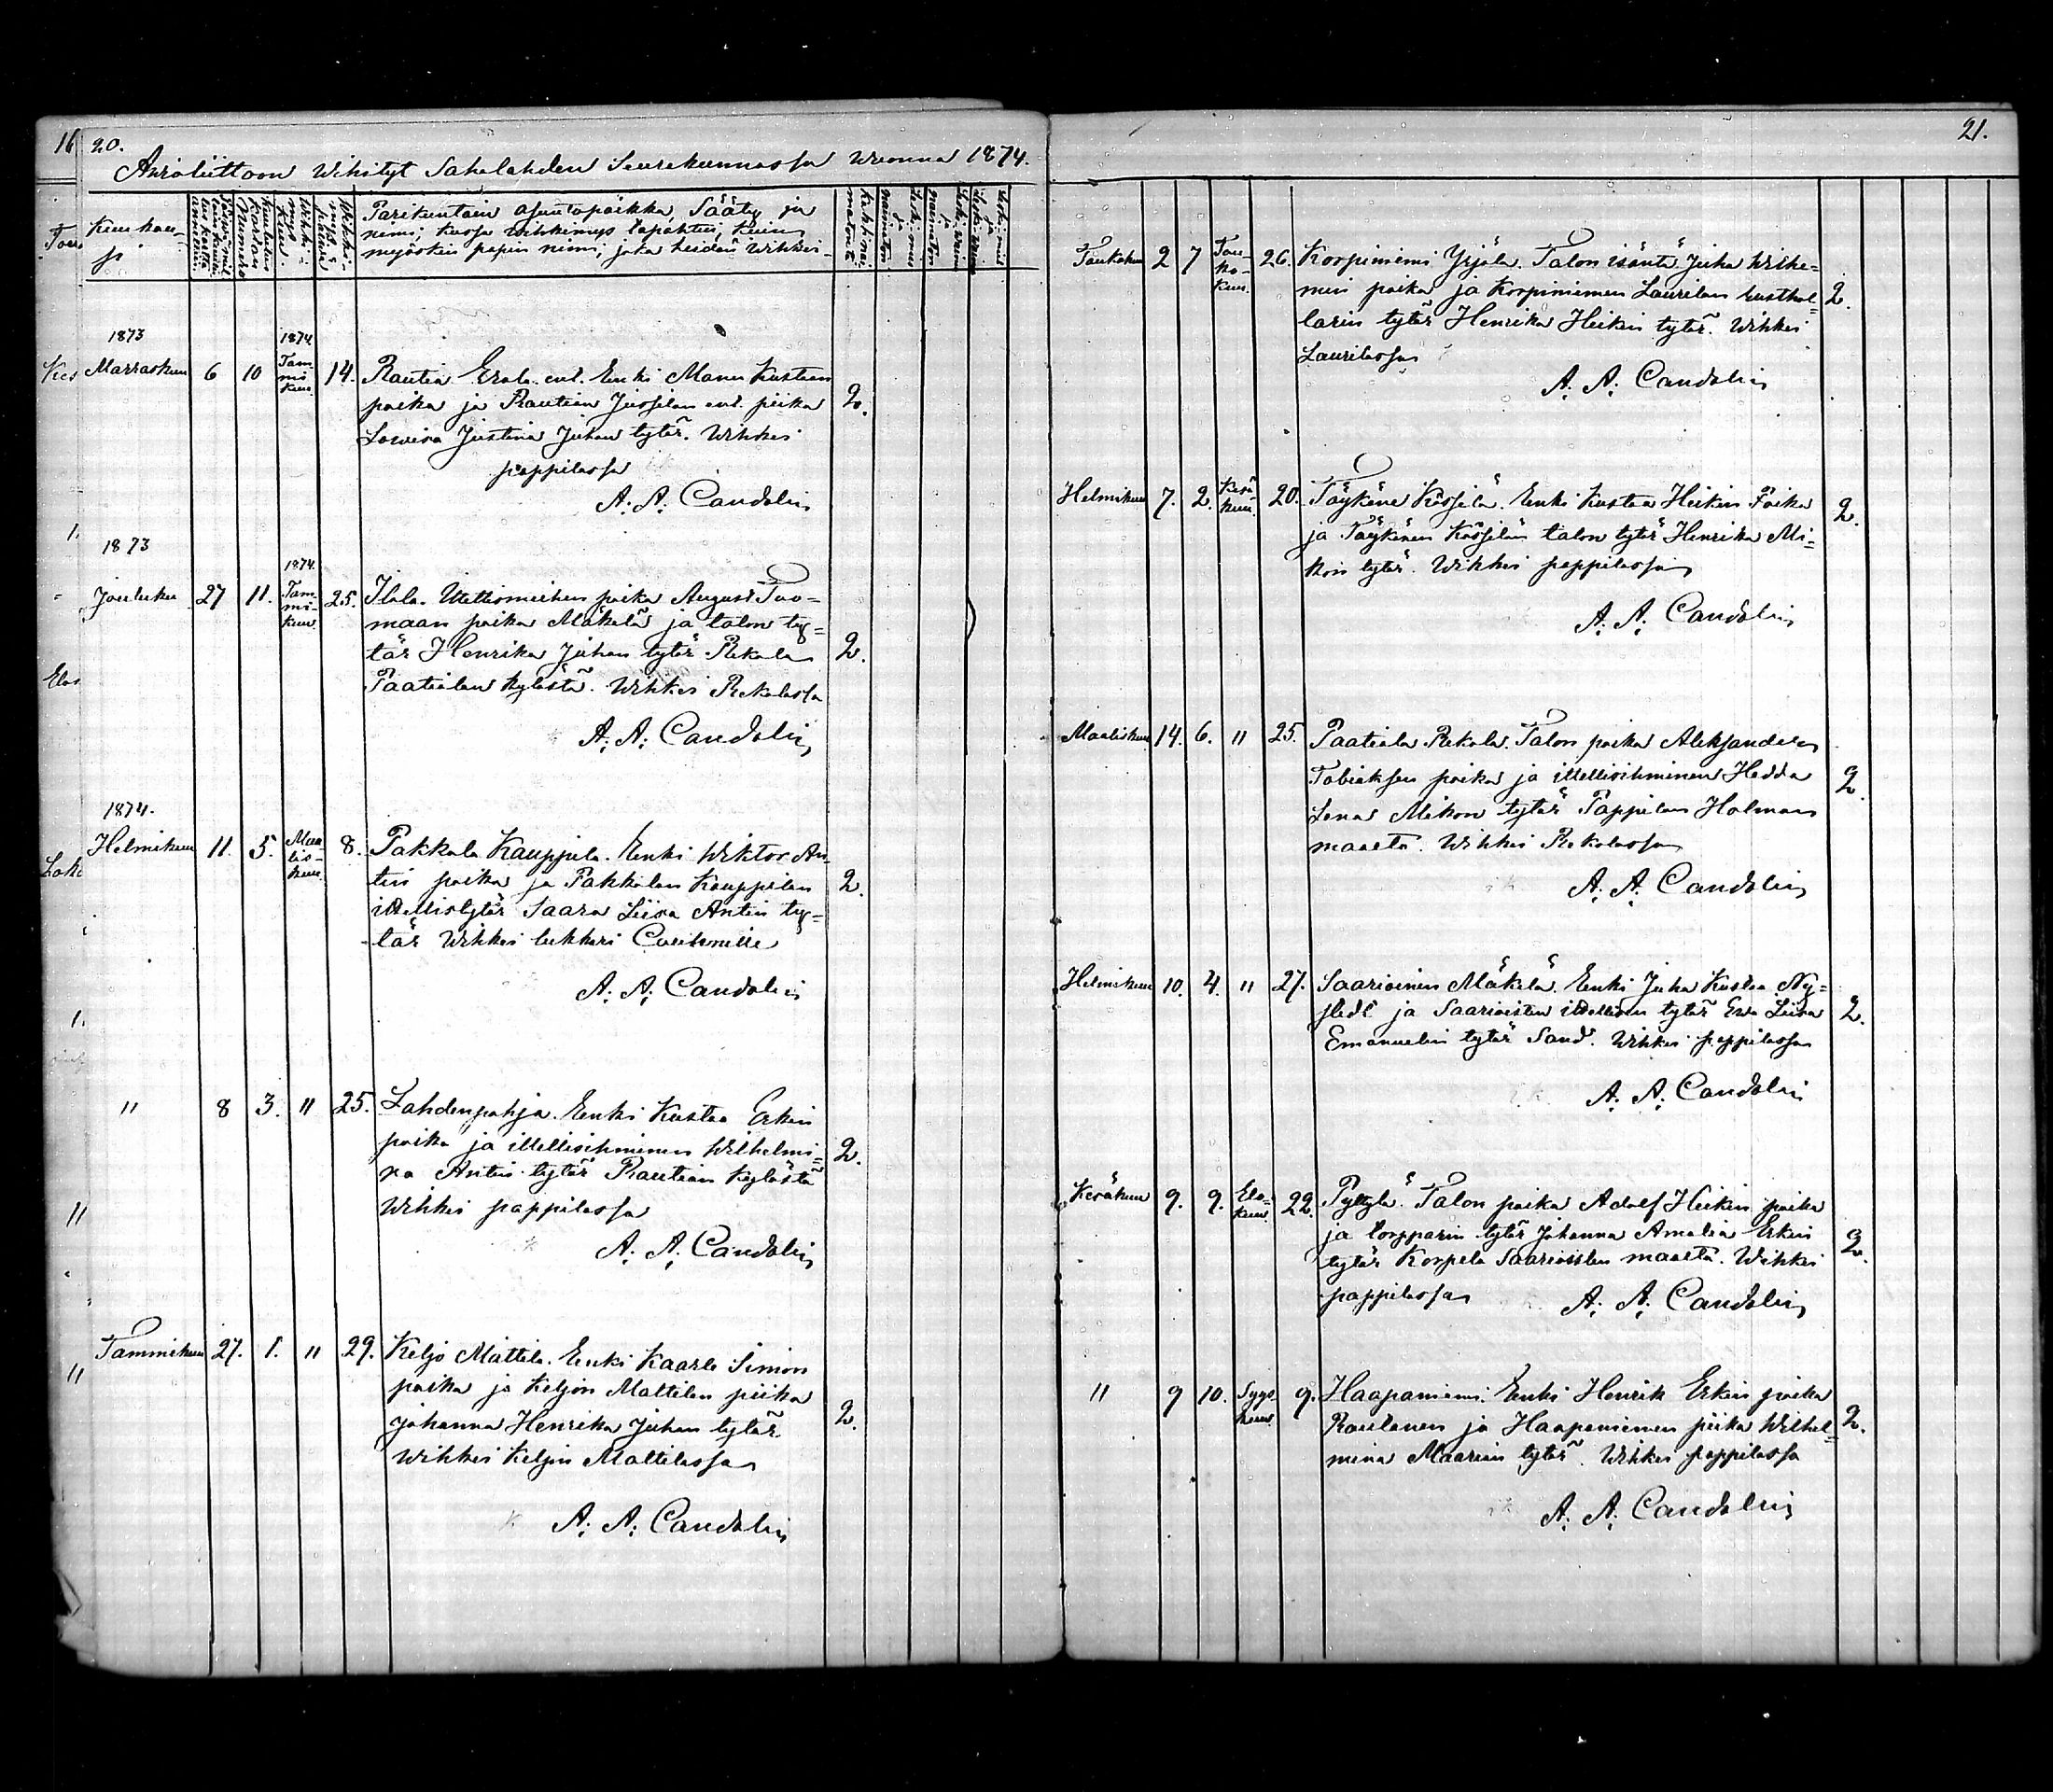 20.
Awioliittoon Wihityt Sahalahden Seurakunnassa Wuonna 1874.
Kuu kau-
si
Parikuntain asuntopaikka, Sääty ja
nimi; kussa wihkimys tapahtui, kuin
myöskin papin nimi, joka heidän Wihkei
1873
1874
Marraskuu 6 10 Tam-
mi
kuu 14. Rautia Erola ent. Renki Manu Kustaan
poika ja Rautian Jussilan ent. piika 2.
Lowisa Justina Juhan tytär. Wihkei
pappilassa
A. A. Candolin
1873
1874.
Jouluku 27 11. Tam-
mi-
kuu 25. Ilola. Itellismiehen poika August Tuo=
maan poika Mäkelä ja talon ty=
tär Henrika Juhan tytär Rekola 2.
Paatialan kylästä. Wihkei Rekolassa
A. A. Candolin
1874.
Helmikuu 11. 5. Maa
lis-
kuu 8. Pakkala Kauppila. Renki Wiktor An
tin poika ja Pakkalan Kauppilan 2.
itellistytär Saara Liisa Antin ty=
tär Wihkei lukkari
A. A. Candolin
" 8 3. " 25. Lahdenpohja. Renki Kustaa Erkin
poika ja itellisihminen Wilhelmi= 2.
na Antin tytär Rautian kylästä
Wihkei pappilassa
A. A. Candolin
Tammikuu 27. 1. " 29. Keljo Mattila. Renki Kaarle Simon
poika ja Keljon Mattilan piika
Johanna Henrika Juhan tytär 2.
Wihkei Keljon Mattilassa
A. A. Candolin
21.
Toukokuu 2 7 Tou-
ko-
kuu. 26. Korpiniemi Yrjölä. Talon isäntä Juha Wilhe=
min poika ja Korpiniemen Laurilan rusthol= 2.
larin tytär Henrika Heikin tytär. Wihkei
Laurilassa
A. A. Candolin
Helmikuu 7. 2. Kesä
kuu. 20. Töykänä Kössilä. Renki Kustaa Heikin Poika 2.
ja Töykänän Kössilän talon tytär Henrika Mi=
kon tytär. Wihkei pappilassa
A. A. Candolin
Maaliskuu 14. 6. " 25. Paatiala Rekola. Talon poika Aleksanderi
Tobiaksen poika ja itellisihminen Hedda 2.
Lena Mikon tytär Pappilan Holman
maalta. Wihkei Rekolassa
A. A. Candolin
Helmikuu 10. 4. " 27. Saarioinen Mäkelä. Renki Juha Kustaa Ny=
stedt ja Saarioisten itellisen tytär Ewa Liisa 2.
Emanuelin tytär Sand. Wihkei pappilassa
A. A. Candolin
Kesäkuu 9. 9. Elo=
kuu. 22. Pyttylä. Talon poika Adolf Heikin poika
ja torpparin tytär Johanna Amalia Erkin 2.
tytär Korpela Saarioisten maalta. Wihkei
pappilassa A. A. Candolin
" 9 10. Syys
kuu. 9. Haapaniemi. Renki Henrik Erkin poika
Rautanen ja Haapaniemen piika Wilhel= 2.
mina Maarian tytär. Wihkei pappilassa
A. A. Candolin